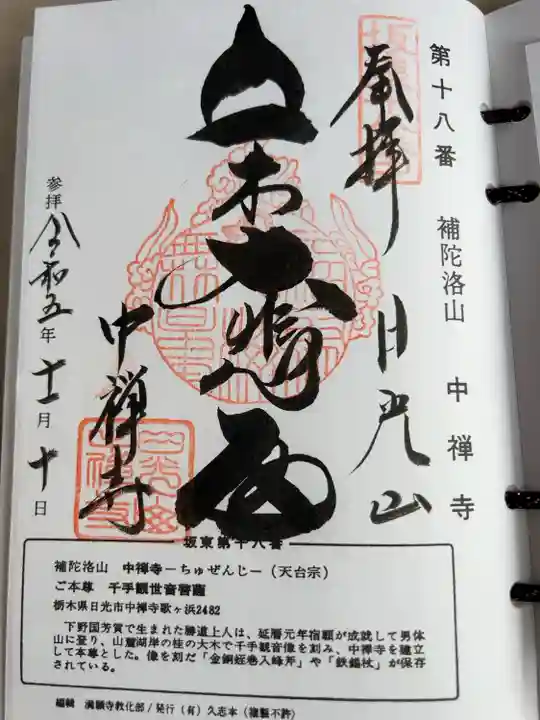 第十八番 補陀洛山 中禅寺
奉拝 日光山
中禅寺
参拝 令和五年十一月十日
坂東第十八番
補陀洛山 中禅寺－ちゅぜんじ－（天台宗）
ご本尊 千手観世音菩薩
栃木県日光市中禅寺歌ヶ浜2482
下野国芳賀で生まれた勝道上人は、延暦元年宿願が成就して男体
山に登り、山麓湖岸の桂の大木で千手観音像を刻み、中禅寺を建立
して本尊とした。像を刻だ「金銅経巻入峰斧」や「鉄錫杖」が保存
されている。
編輯 満願寺教化部／発行（有）久志本（複製不許）